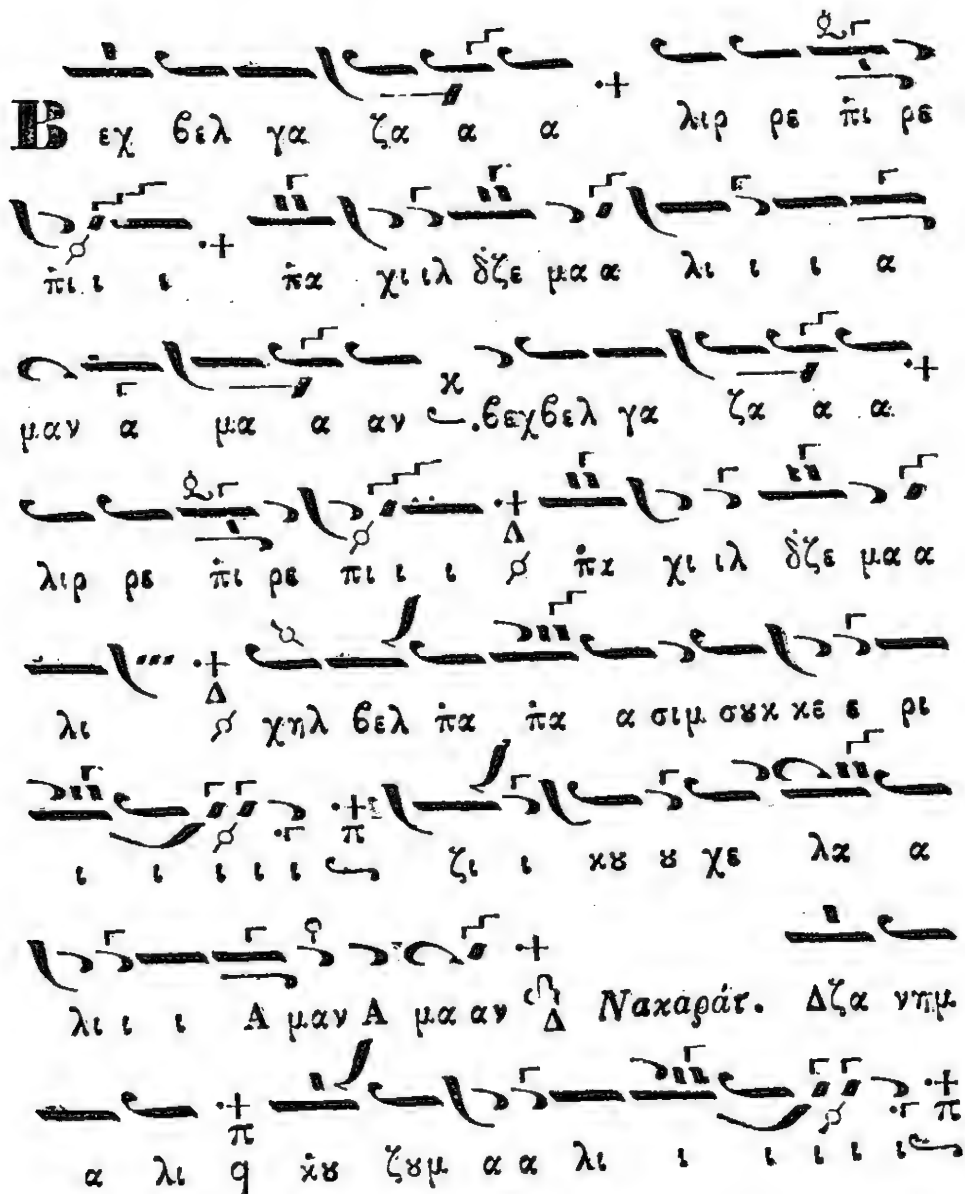 Β εχ βελ γα ζα α α λιρ ρε π̇ι ρε
π̇ι ι ι π̇α χι ιλ δ̇ζε μα α λι ι ι α
μαν α μα α αν βεχβελ γα ζα α α
λιρ ρε π̇ι ρε πι ι ι π̇α χι ιλ δ̇ζε μα α
λι χηλ βελ π̇α π̇α α σιμ σȣκ κε ε ρι
ι ι ι ι ι ζι ι κȣ ȣ χε λα α
λι ι ι Α μαν Α μα αν Νακαράτ. Δζα νημ
α λι q κ̇ȣ ζȣμ α α λι ι ι ι ι ι